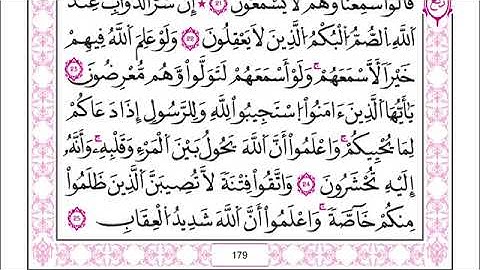 قَالُوا۟ سَمِعْنَا وَهُمْ لَا يَسْمَعُونَ ٢١ ۞ إِنَّ شَرَّ ٱلدَّوَآبِّ عِندَ
ٱللَّهِ ٱلصُّمُّ ٱلْبُكْمُ ٱلَّذِينَ لَا يَعْقِلُونَ ٢٢ وَلَوْ عَلِمَ ٱللَّهُ فِيهِمْ
خَيْرًا لَّأَسْمَعَهُمْ ۖ وَلَوْ أَسْمَعَهُمْ لَتَوَلَّوا۟ وَّهُم مُّعْرِضُونَ ٢٣
يَٰٓأَيُّهَا ٱلَّذِينَ ءَامَنُوا۟ ٱسْتَجِيبُوا۟ لِلَّهِ وَلِلرَّسُولِ إِذَا دَعَاكُمْ
لِمَا يُحْيِيكُمْ ۖ وَٱعْلَمُوٓا۟ أَنَّ ٱللَّهَ يَحُولُ بَيْنَ ٱلْمَرْءِ وَقَلْبِهِۦ وَأَنَّهُۥٓ
إِلَيْهِ تُحْشَرُونَ ٢٤ وَٱتَّقُوا۟ فِتْنَةً لَّا تُصِيبَنَّ ٱلَّذِينَ ظَلَمُوا۟
مِنكُمْ خَآصَّةً ۖ وَٱعْلَمُوٓا۟ أَنَّ ٱللَّهَ شَدِيدُ ٱلْعِقَابِ ٢٥
179